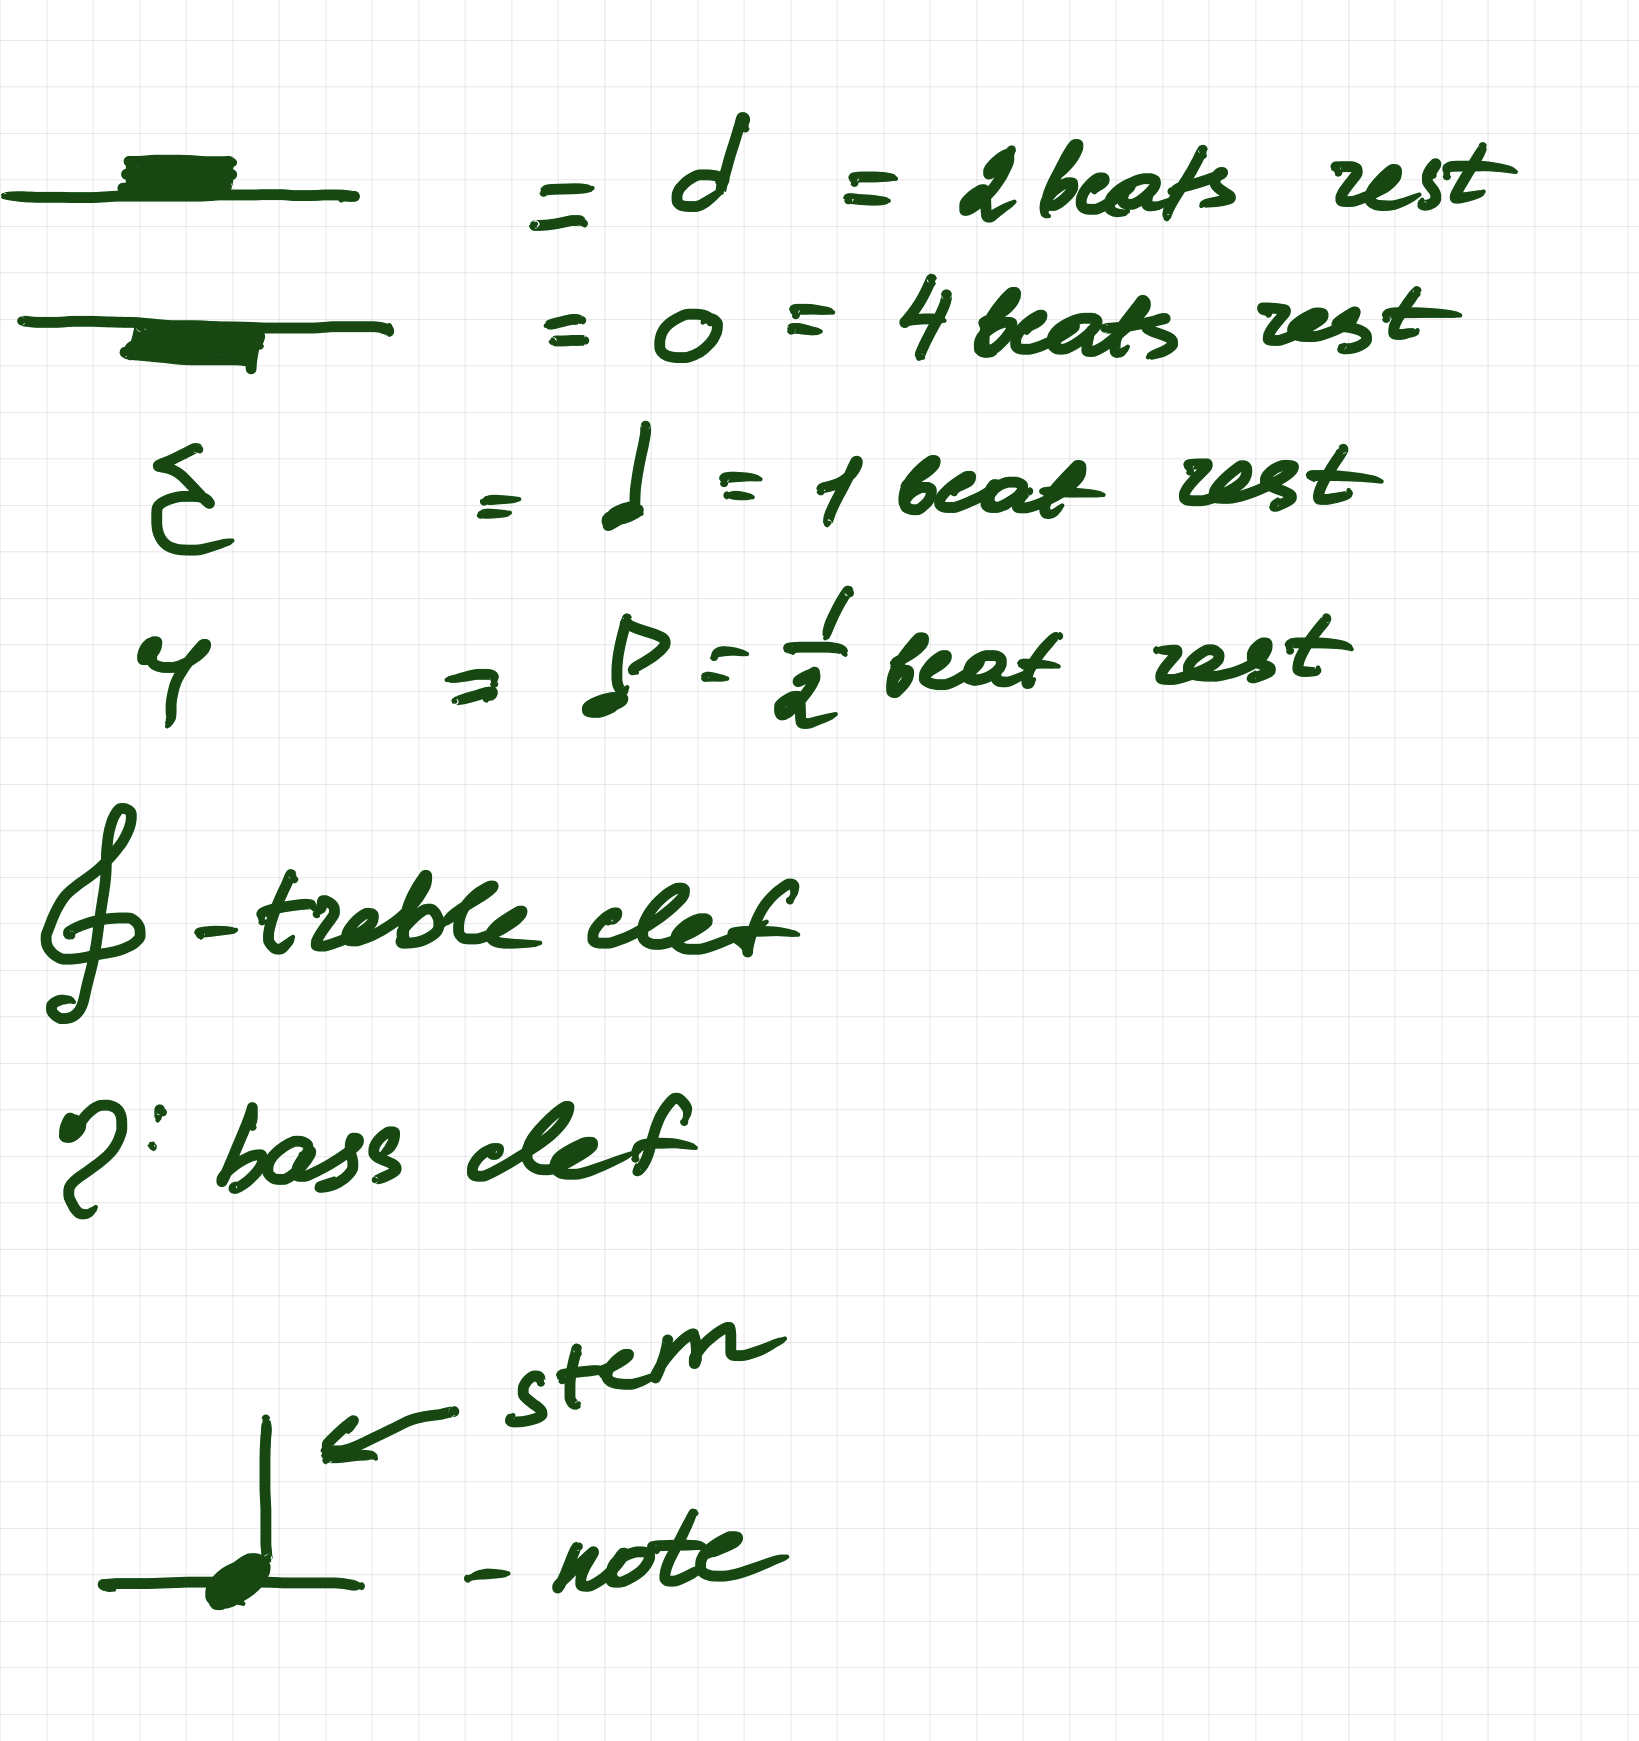 = 𝅗𝅥 = 2 beats rest
= o = 4 beats rest
= ♩ = 1 beat rest
= ♪ = 1/2 beat rest
- treble clef
bass clef
stem
- note